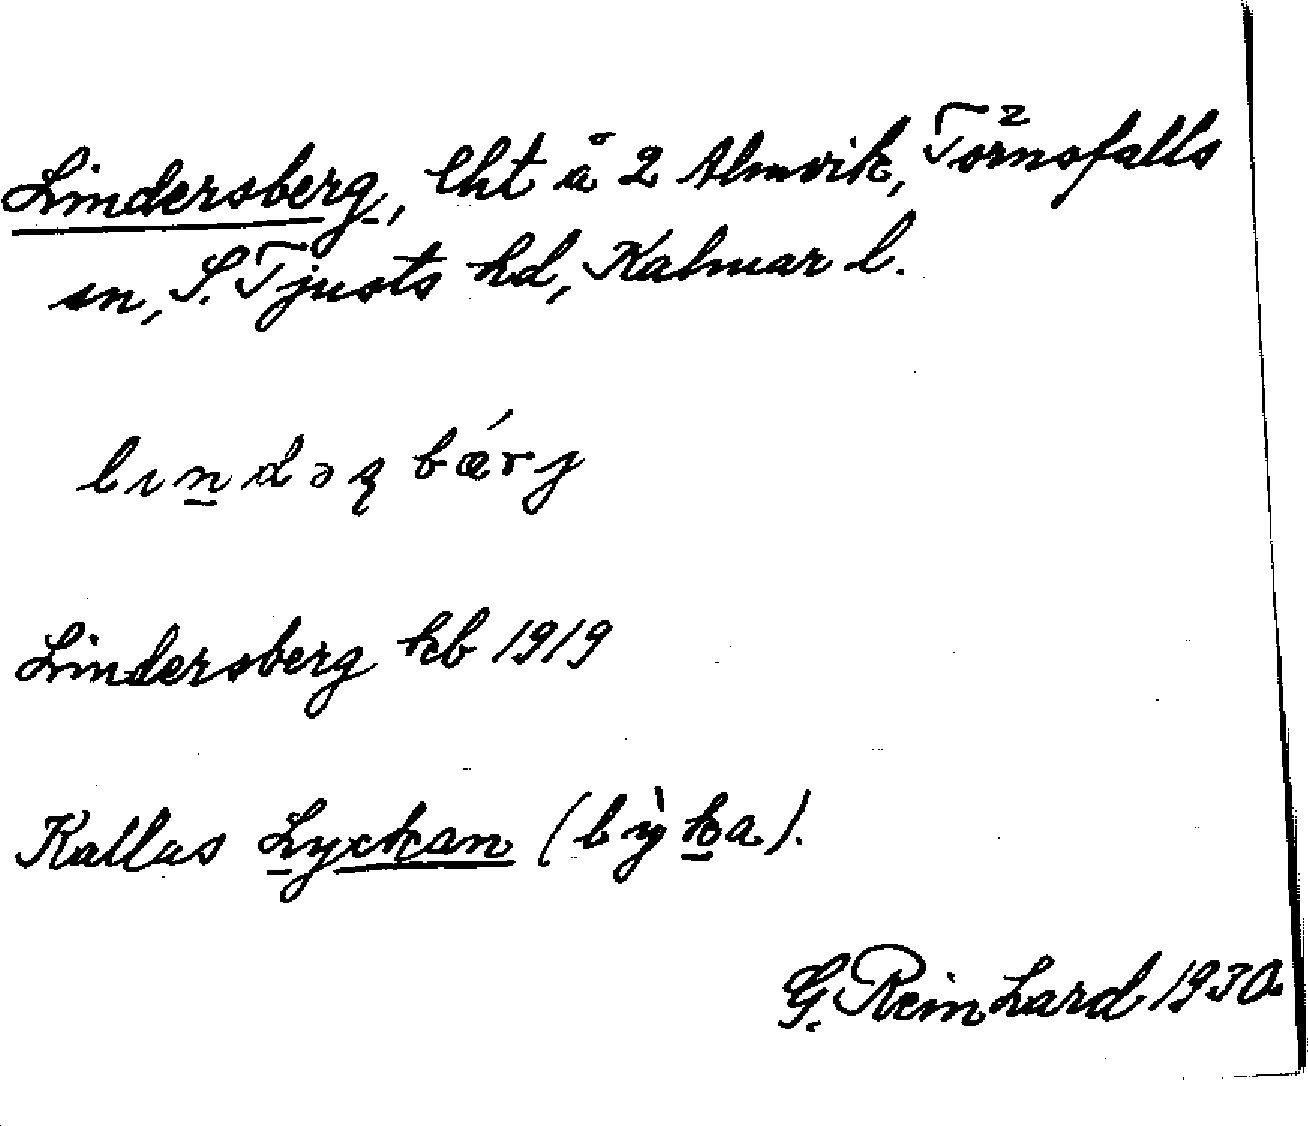 Lindersberg, lht å 2 Almvik, Törnsfalls
sn, S. Tjusts hd, Kalmar l.
lındəʂbǽrj
Lindersberg kb 1919
Kallas Lyckan (lỳka).
G. Reinhard 1930.